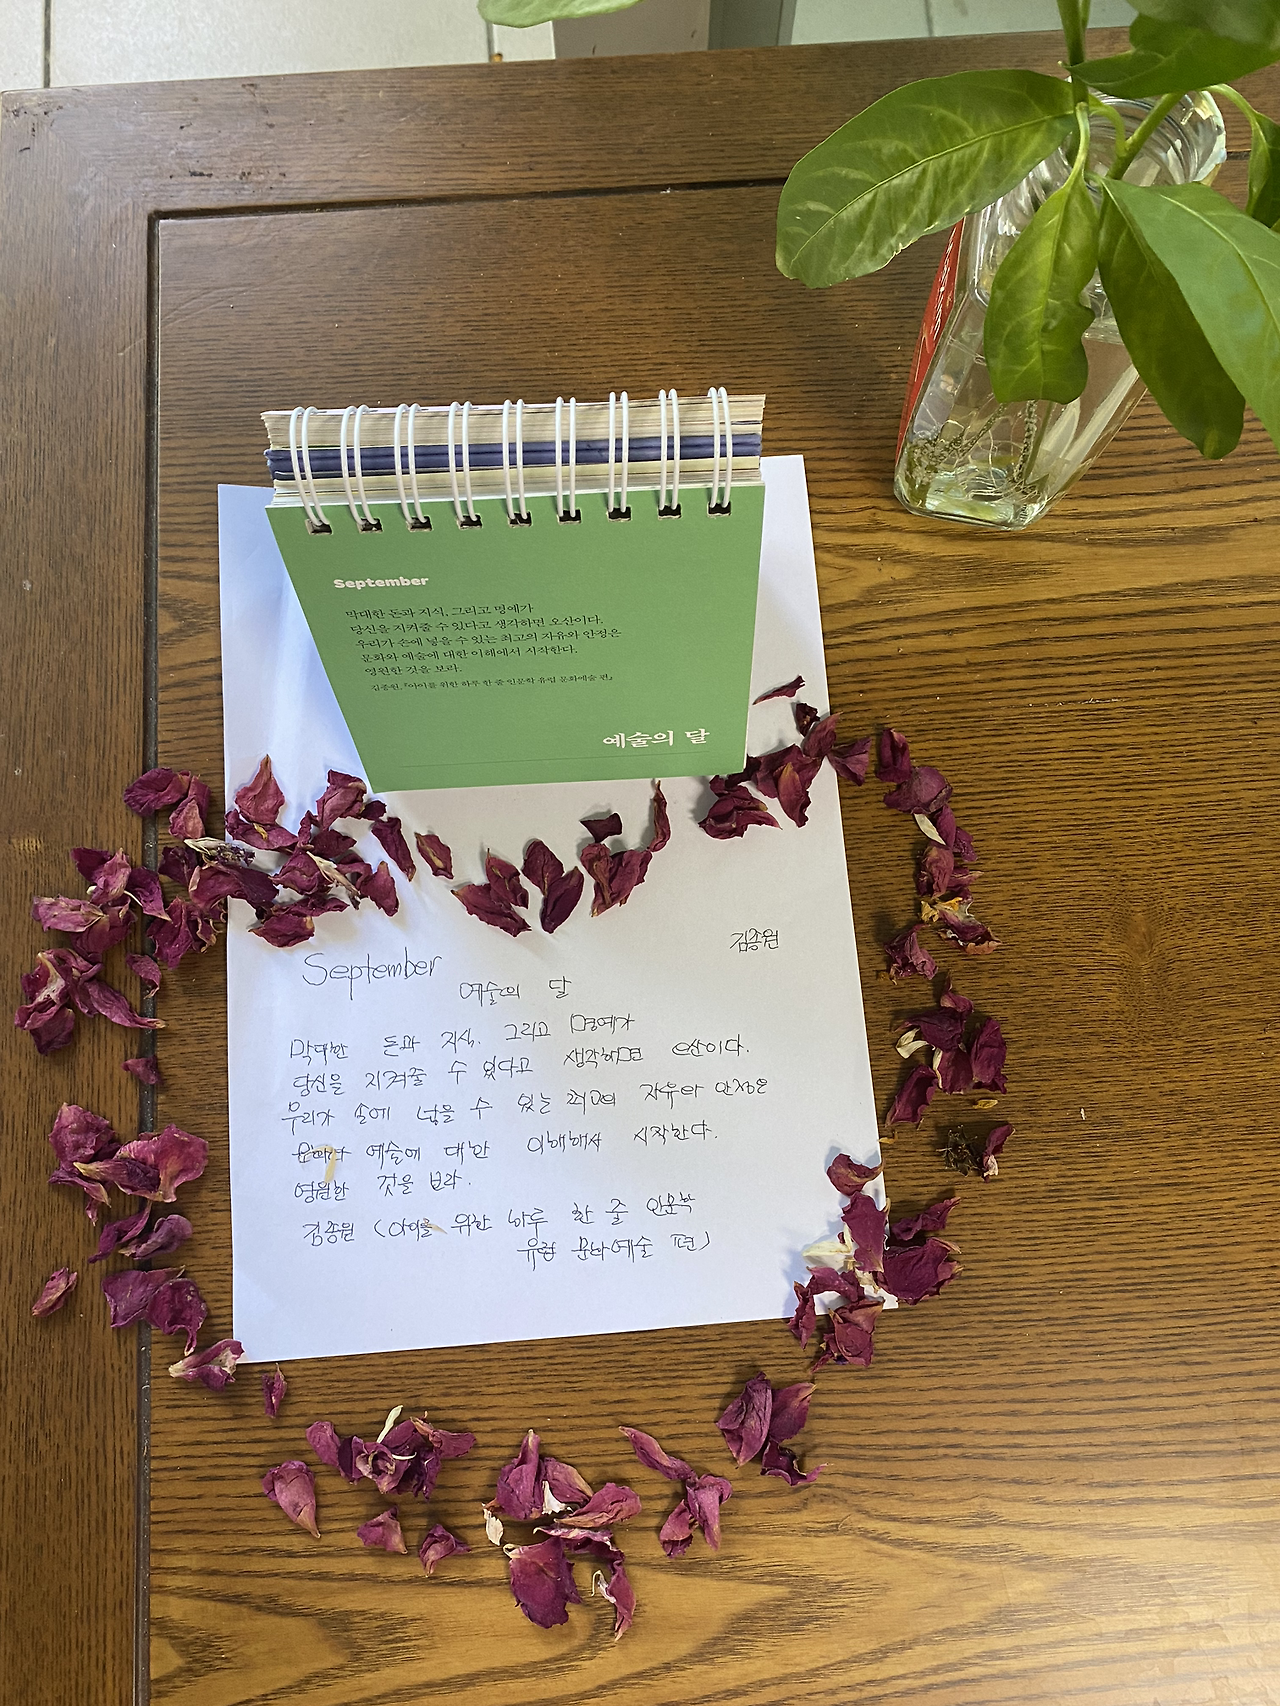 September
막대한 돈과 지식, 그리고 명예가
당신을 지켜줄 수 있다고 생각하면 오산이다.
우리가 손에 넣을 수 있는 최고의 자유와 안정은
문화와 예술에 대한 이해에서 시작한다.
영원한 것을 보라.
김종원, 『아이를 위한 하루 한 줄 인문학 유럽 문화예술 편』
예술의 달
김종원
September
예술의 달
막대한 돈과 지식. 그리고 명예가
당신을 지켜줄 수 있다고 생각하면 오산이다.
우리가 손에 넣을 수 있는 최고의 자유와 안정은
문화와 예술에 대한 이해에서 시작한다.
영원한 것을 보라.
김종원 (아이를 위한 하루 한 줄 인문학
유럽 문화예술 편)